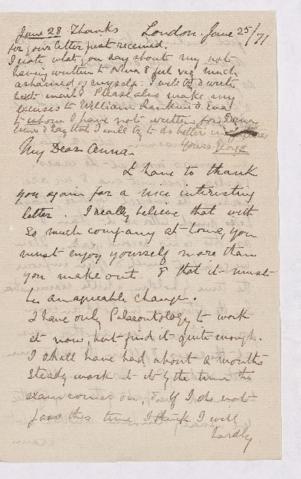 June 28 Thanks London June 25/71
for your letter just received.
I note what you say about my not
having written to Anna & feel very much
ashamed of myself. I will try & write
next mail. Please also make my
excuses to William Rankine &
to whom I have not written for
time & say that I will try to do better in
Yours
My Dear Anna.
I have to thank
you again for a nice interesting
letter. I really believe that with
so much company at home, you
must enjoy yourself more than
you make out & that it must
be an agreeable change.
I have only Palaeontology to work
at now, but find it quite enough.
I shall have had about a months
steady work at it by the time the
exam comes on, & if I do not
pass this time, I think I will
hardly